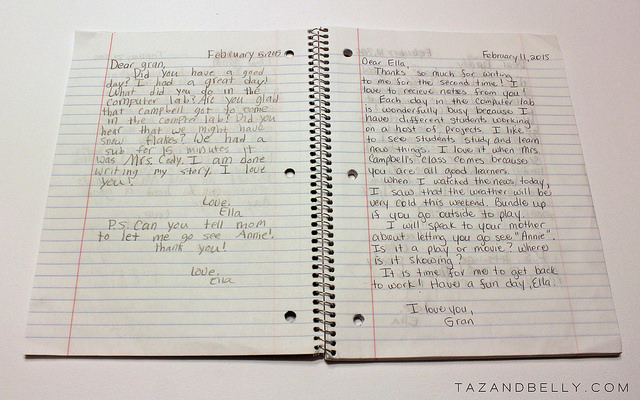 February 5, 2015
Dear gran,
Did you have a good
day? I had a great day!
What did you do in the
computer lab? Are you glad
that campbell got to come
in the computer lab? Did you
hear that we might have
snow flakes? We had a
sub for 15 minutes it
was Mrs. Cody. I am done
writing my story. I love
you!
Love,
Ella
P.S. Can you tell mom
to let me go see Annie!
Thank you!
Love,
Ella
February 11, 2015
Dear Ella,
Thanks so much for writing
to me for the second time! I
love to recieve notes from you!
Each day in the computer lab
is wonderfully busy because I
have different students working
on a host of projects. I like
to see students study and learn
new things. I love it when Mrs.
Campbell's class comes because
you are all good learners.
When I watched the news today,
I saw that the weather will be
very cold this weekend. Bundle up
if you go outside to play.
I will speak to your mother
about letting you go see "Annie".
Is it a play or movie? Where
is it showing?
It is time for me to get back
to work! Have a fun day, Ella.
I love you,
Gran
TAZANDBELLY.COM